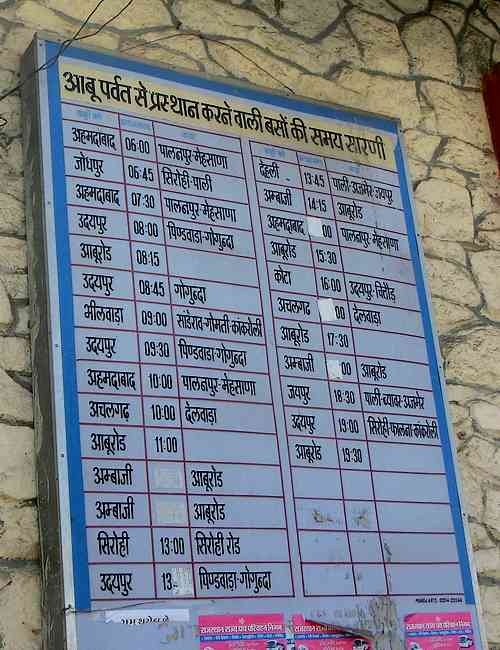 आबू पर्वत से प्रस्थान करने वाली बसों की समय सारणी
अहमदाबाद 06:00 पालनपुर-मेहसाणा
जोधपुर 06:45 सिरोही-पाली
अहमदाबाद 07:30 पालनपुर-मेहसाणा
उदयपुर 08:00 पिण्डवाडा-गोगुन्दा
आबूरोड 08:15
उदयपुर 08:45 गोगुन्दा
भीलवाडा 09:00 सांडेराव-गोमती कांकरोली
उदयपुर 09:30 पिण्डवाडा-गोगुन्दा
अहमदाबाद 10:00 पालनपुर-मेहसाणा
अचलगढ़ 10:00 देलवाडा
आबूरोड 11:00
अम्बाजी आबूरोड
अम्बाजी आबूरोड
सिरोही 13:00 सिरोही रोड
उदयपुर 13 पिण्डवाडा-गोगुन्दा
देहली - 13:45 पाली-अजमेर-जयपुर
अम्बाजी 14:15 आबूरोड
अहमदाबाद :00 पालनपुर-मेहसाणा
आबूरोड 15:30
कोटा 16:00 उदयपुर-चित्तौड़
अचलगढ 00 देलवाडा
आबूरोड 17:30
अम्बाजी 00 आबूरोड
जयपुर 18:30 पाली-ब्यावर-अजमेर
उदयपुर 19:00 सिरोही-फालना-कांकरोली
आबूरोड 19:30
राजस्थान राज्य पथ परिवहन निगम